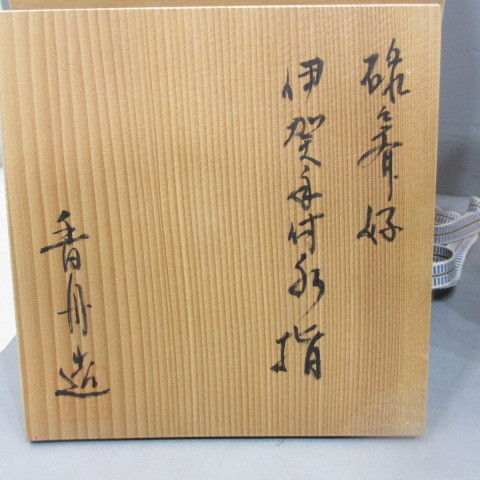 碌々斎好
伊賀手付水指
香舟造